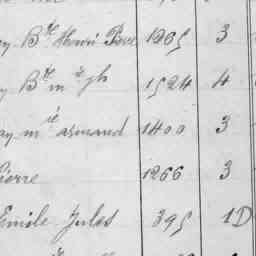 y Bte Henri 1205 3
y Bte m jh 1524 4
ay m armand 1400 3
Pierre 1266 3
Emile Jules 395 1D